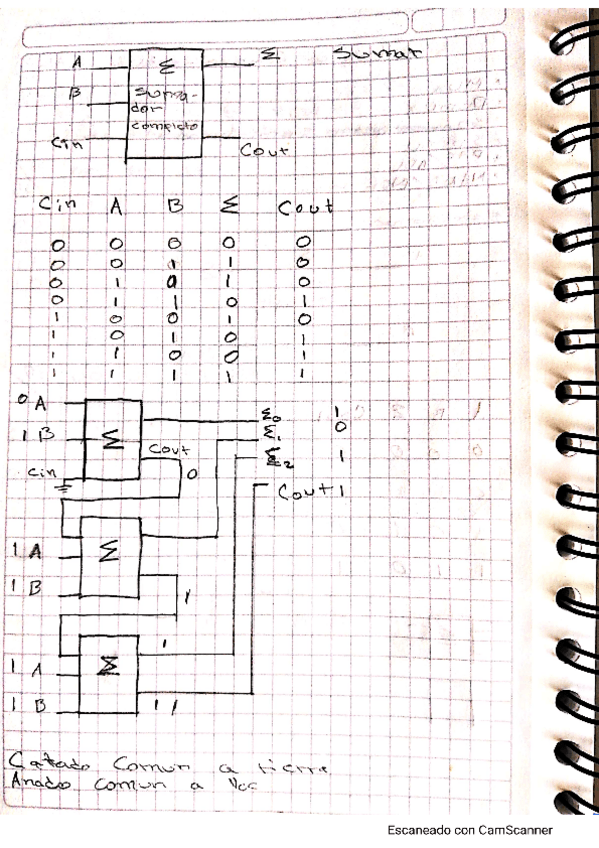 Σ Sumar
A Σ
B Suma-
dor
completo
Cin Cout
Cin A B Σ Cout
0 0 0 0 0
0 0 1 1 0
0 1 0 1 0
0 1 1 0 1
1 0 0 1 0
1 0 1 0 1
1 1 0 0 1
1 1 1 1 1
0 A
Σ0 1
1 B Σ Σ1 0
Cout
Cin 0 Σ2 1
Cout 1
1 A Σ
1 B 1
1
1 A Σ
1 B 1 1
Catado Comun a tierra
Anado comun a Vcc
Escaneado con CamScanner